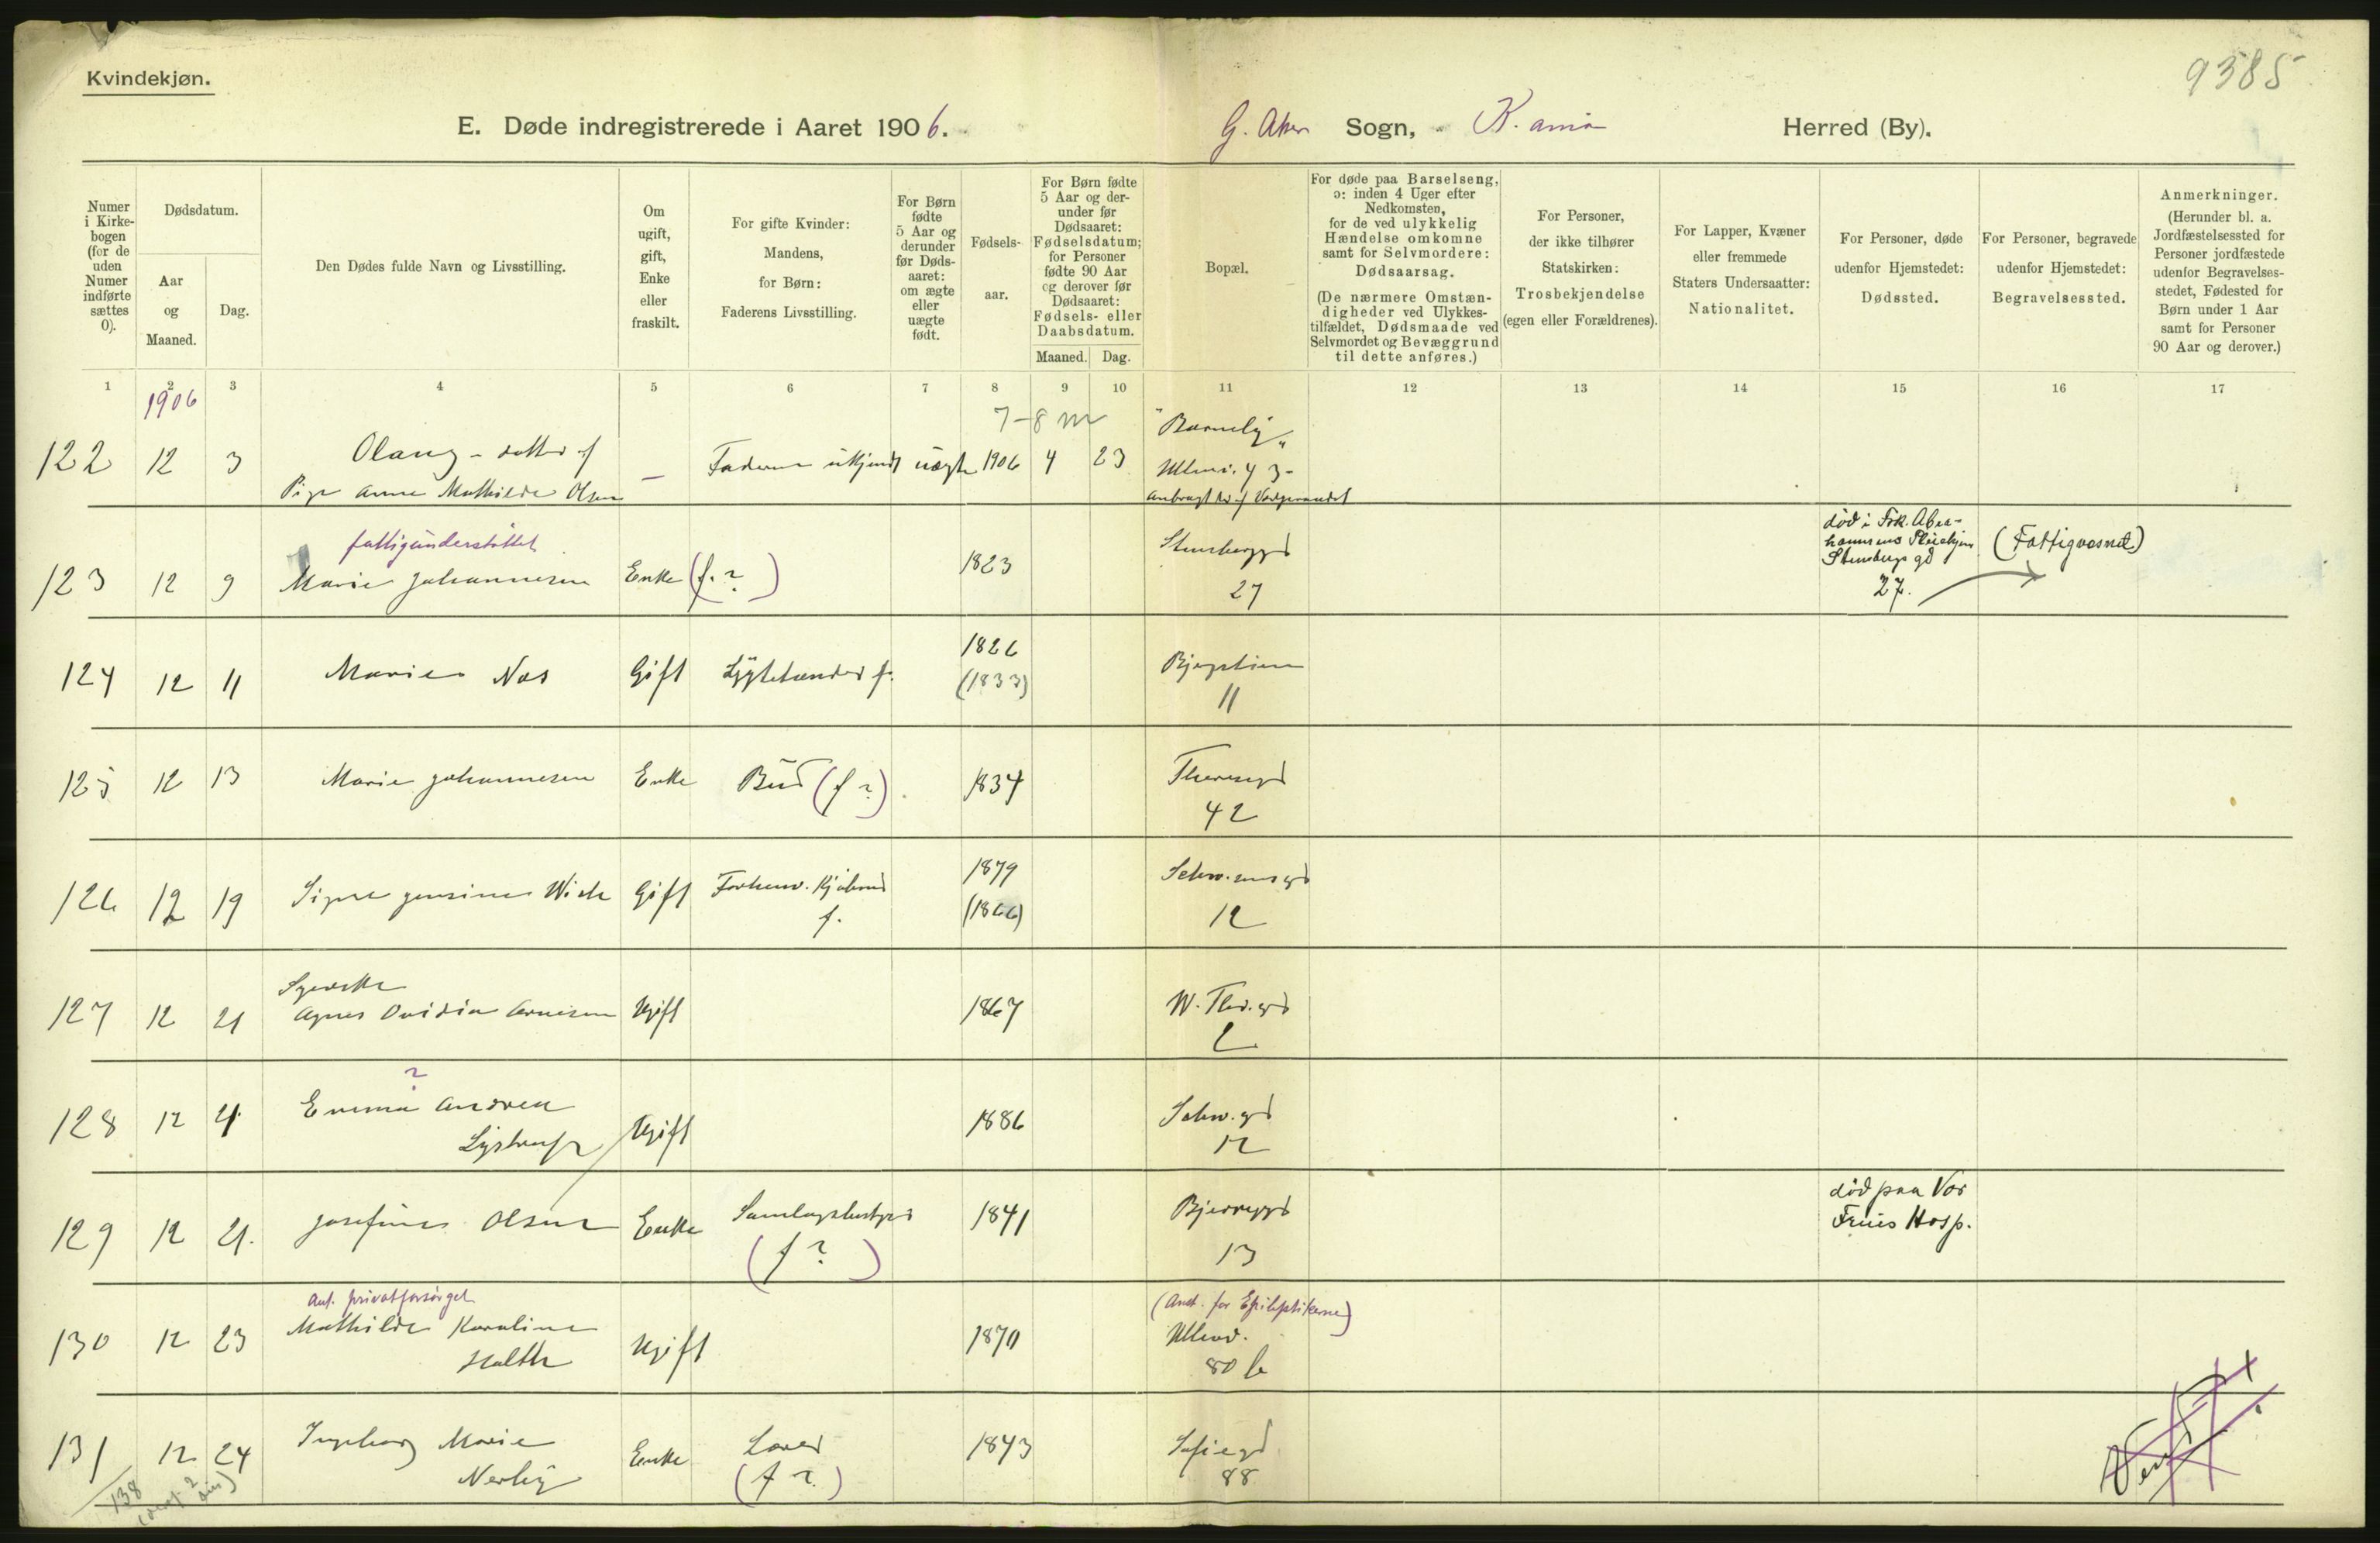 Kvindekjøn.
9385
E. Døde indregistrerede i Aaret 1906. G. Aker Sogn, K.ania Herred (By).
Numer i Kirkebogen (for de uden Numer indførte sættes 0).
Dødsdatum.
Aar og Maaned.
Dag.
Den Dødes fulde Navn og Livsstilling.
Om ugift, gift, Enke eller fraskilt.
For gifte Kvinder: Mandens, for Børn: Faderens Livsstilling.
For Børn fødte 5 Aar og derunder før Dødsaaret: om ægte eller uægte født.
Fødselsaar.
For Børn fødte 5 Aar og derunder før Dødsaaret: Fødselsdatum; for Personer fødte 90 Aar og derover før Dødsaaret: Fødsels- eller Daabsdatum.
Maaned. Dag.
Bopæl.
For døde paa Barselseng, ɔ: inden 4 Uger efter Nedkomsten, for de ved ulykkelig Hændelse omkomne samt for Selvmordere: Dødsaarsag.
(De nærmere Omstændigheder ved Ulykkestilfældet, Dødsmaade ved Selvmordet og Bevæggrund til dette anføres.)
For Personer, der ikke tilhører Statskirken: Trosbekjendelse (egen eller Forældrenes).
For Lapper, Kvæner eller fremmede Staters Undersaatter: Nationalitet.
For Personer, døde udenfor Hjemstedet: Dødssted.
For Personer, begravede udenfor Hjemstedet: Begravelsessted.
Anmerkninger.
(Herunder bl. a. Jordfæstelsessted for Personer jordfæstede udenfor Begravelsesstedet, Fødested for Børn under 1 Aar samt for Personer 90 Aar og derover.)
1 2 3 4 5 6 7 8 9 10 11 12 13 14 15 16 17
1906
7-8 m
122 12 3 Olaug - datter af — Faderen ukjendt uægte 1906 4 23
Pige Anna Mathilde Olsen
fattigunderstøttet
123 12 9 Marie Johannesen Enke (f. ?) 1823 Stensberggd 27
død i Frk. Abrahamsens Pleiehjem Stensberg gd 27.
(Fattigvæsnet)
124 12 11 Marie Næs Gift Lygtetænder f. 1826 (1833) 11
125 12 13 Marie Johannesen Enke Bud (f ?) 1834 Theresegd 42
126 12 19 Signe Jensine Wiik Gift f. 1879 (1866) 12
Syerske
127 12 21 Agnes Ovidia Arnesen Ugift 1867 W. Thr. gd 2
?
128 12 21 Emma Andrea Ugift 1886 Schw. gd 12
129 12 21. Josefine Olsen Enke (f ?) 1841 Bjerregd 13
død paa Vor Frues Hosp.
Ant. privatforsørget
130 12 23 Mathilde Karoline Holth Ugift 1870 (Anst. for Epileptikerne) Ullevv. 80 b
131 12 24 Ingeborg Marie Nerlig Enke (f ?) 1843 Sofiegd 88
138